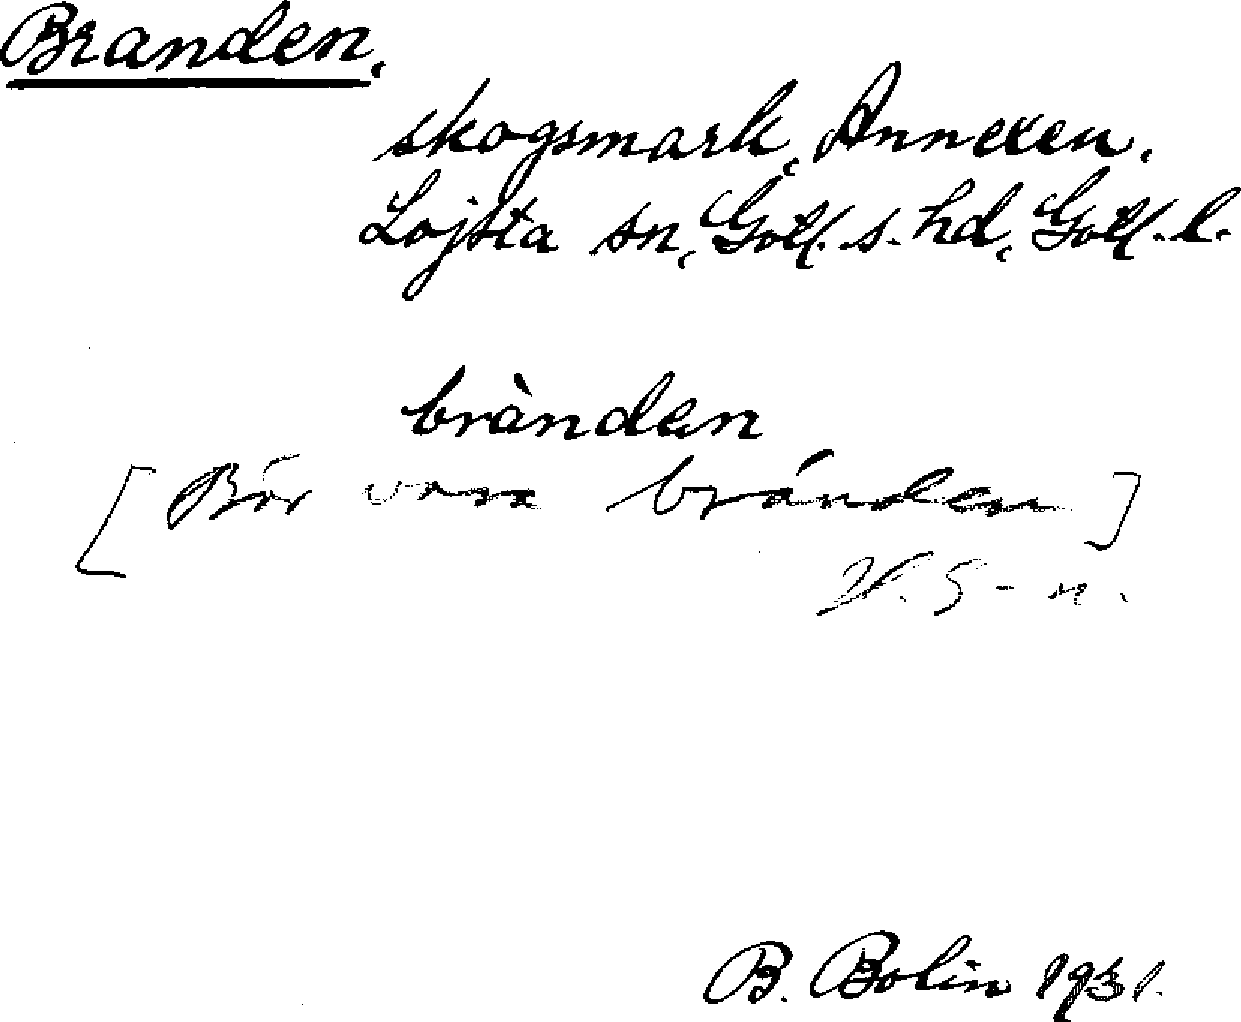 Branden,
skogsmark, Annexen.
Lojsta sn, Gotl. s. hd, Gotl. l.
brànden
[Bör vara bránden]
V. G-n.
B. Bolin 1931.